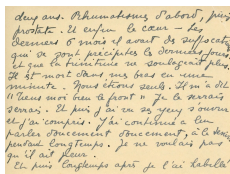 deux ans. Rhumatismes d'abord, puis
prostate. Et enfin le cœur – les
derniers 6 mois il avait des suffocations
qui se sont précipitées les derniers jours
et que la trinitrine ne soulageait plus.
Il est mort dans mes bras en une
minute. Nous étions seuls. Il m'a dit
"Tiens moi bien le front" Je le serrais
serrais. Et puis j'ai vu ses yeux s'ouvrir
et j'ai compris. J'ai continué à lui
parler doucement doucement, à le serrer
pendant longtemps. Je ne voulais pas
qu'il ait peur.
Et puis longtemps après je l'ai habillé